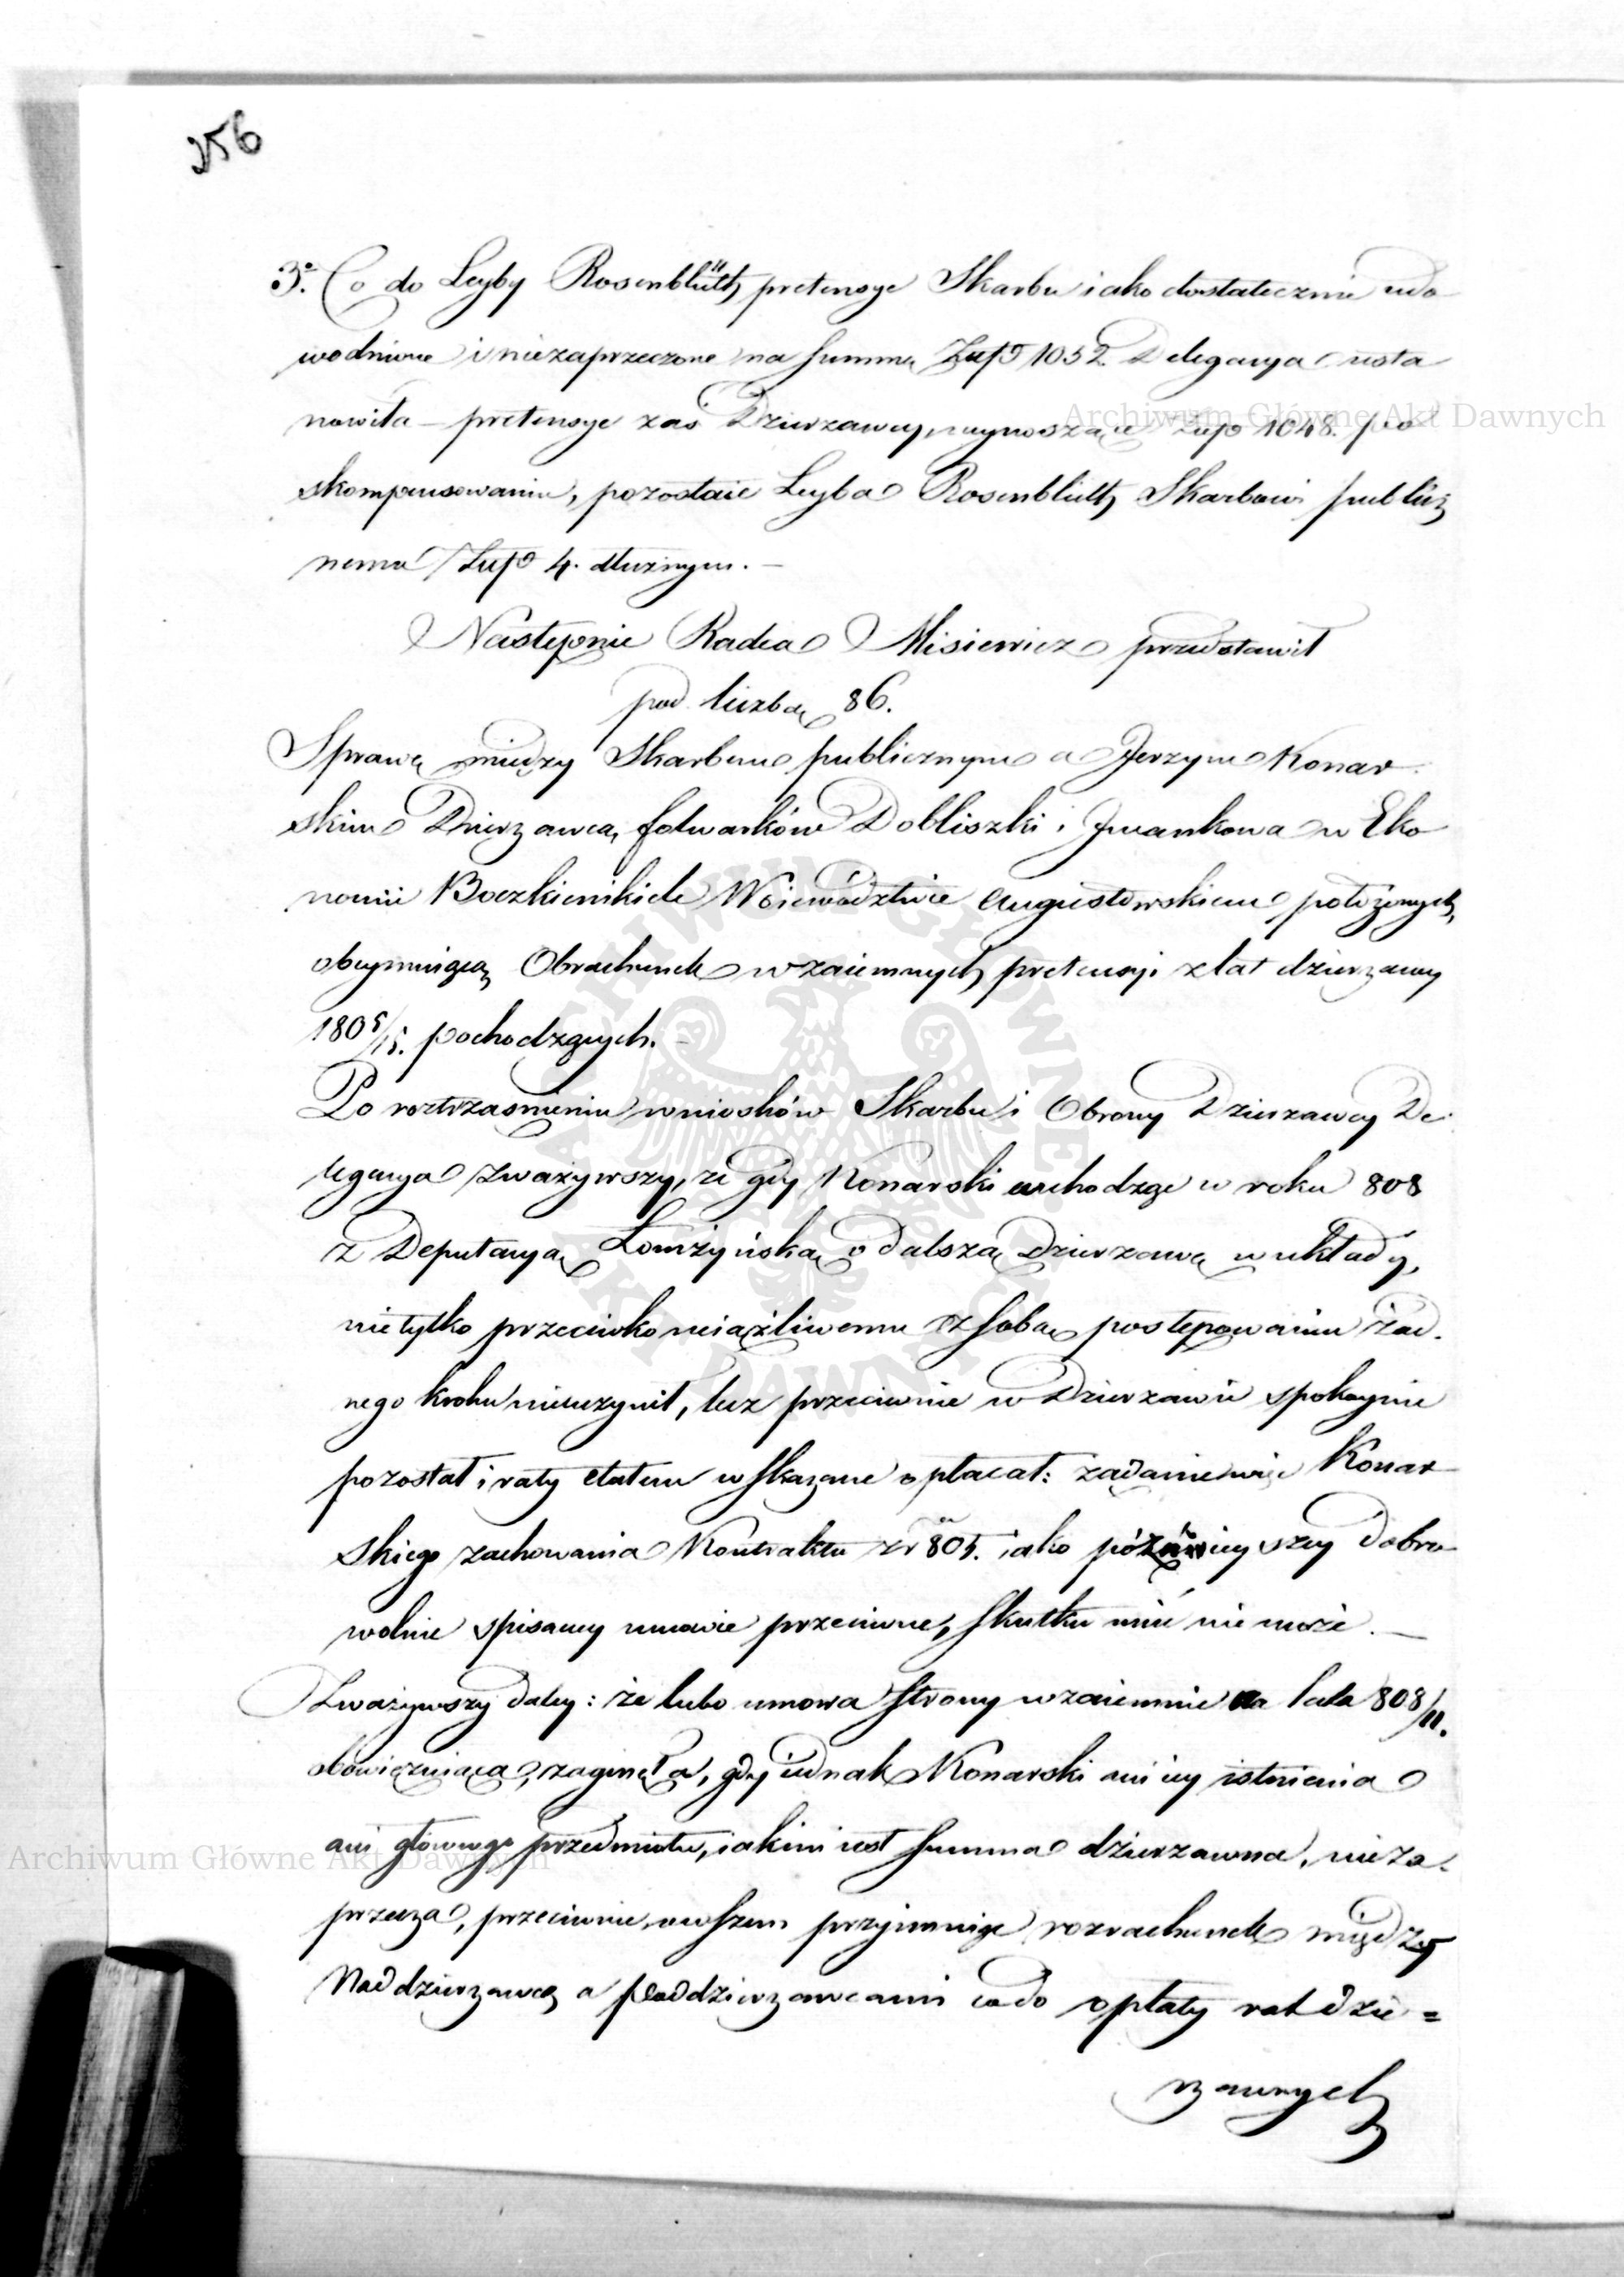 356
3o. Co do Leyby Rosenblüth pretensye Skarbu iako dostatecznie udo-
wodnione i niezaprzeczone na summę Złp 1052. Delegacya usta
nowiła – pretensye zaś Dzierzawcy, wynoszące Złp 1048. po
skompensowaniu, pozostaie Leyba Rosenblüth Skarbowi publicz
nemu Złp 4. dłużnym. –
Następnie Radca Misiewicz przedstawił
pod liczbą 86.
Sprawę między Skarbem publicznym a Jerzym Konar
skim Dzierzawcą folwarków Dobliszki i Iwankowa w Eko
nomii Boczkienikiele Woiewództwie Augustowskiem położonych,
obeymuiącą Obrachunek wzaiemnych pretensyi z lat dzierzawy
1805/15. pochodzących. –
Po roztrząśnieniu wniosków Skarbu i Obrony Dzierzawcy De-
legacya zważywszy, że gdy Konarski wchodząc w roku 808
z Deputacyą Łomżyńską o dalszą Dzierzawę w układy,
nie tylko przeciwko uciążliwemu z sobą postępowaniu żad-
nego kroku nieuczynił, lecz przeciwnie w Dzierzawie spokoynie
pozostał i raty etatem wskazane opłacał: żądanie więc Konar-
skiego zachowania Kontraktu z r 805. iako późnieyszey dobro-
wolnie spisaney umowie przeciwne, skutku mieć nie może. –
Zważywszy daley: że lubo umowa strony wzaiemnie na lata 808/11.
obowięzuiąca, zaginęła, gdy iednak Konarski ani iey istnienia
ani głównego przedmiotu, iakim iest summa dzierzawna, nieza-
przecza, przeciwnie owszem przyimuiąc rozrachunek między
Naddzierzawcą a poddzierzawcami co do opłaty rat dzie=
rzawnych
Archiwum Główne Akt Dawnych
Archiwum Główne Akt Dawnych
ARCHIWUM GŁÓWNE AKT DAWNYCH